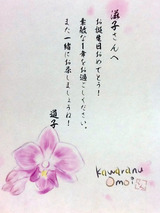 滋子さんへ
お誕生日おめでとう！
素敵な１年をお過ごしください。
また一緒にお茶しましょうね！
道子
Kawaranu
Omoi